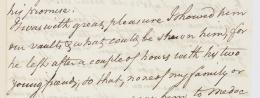 his promise.
It was with great pleasure I showed him
our vaults & what could be shewn him, for
he left after a couple of hours with his two
young friends, so that none of my family or
him to Medoc